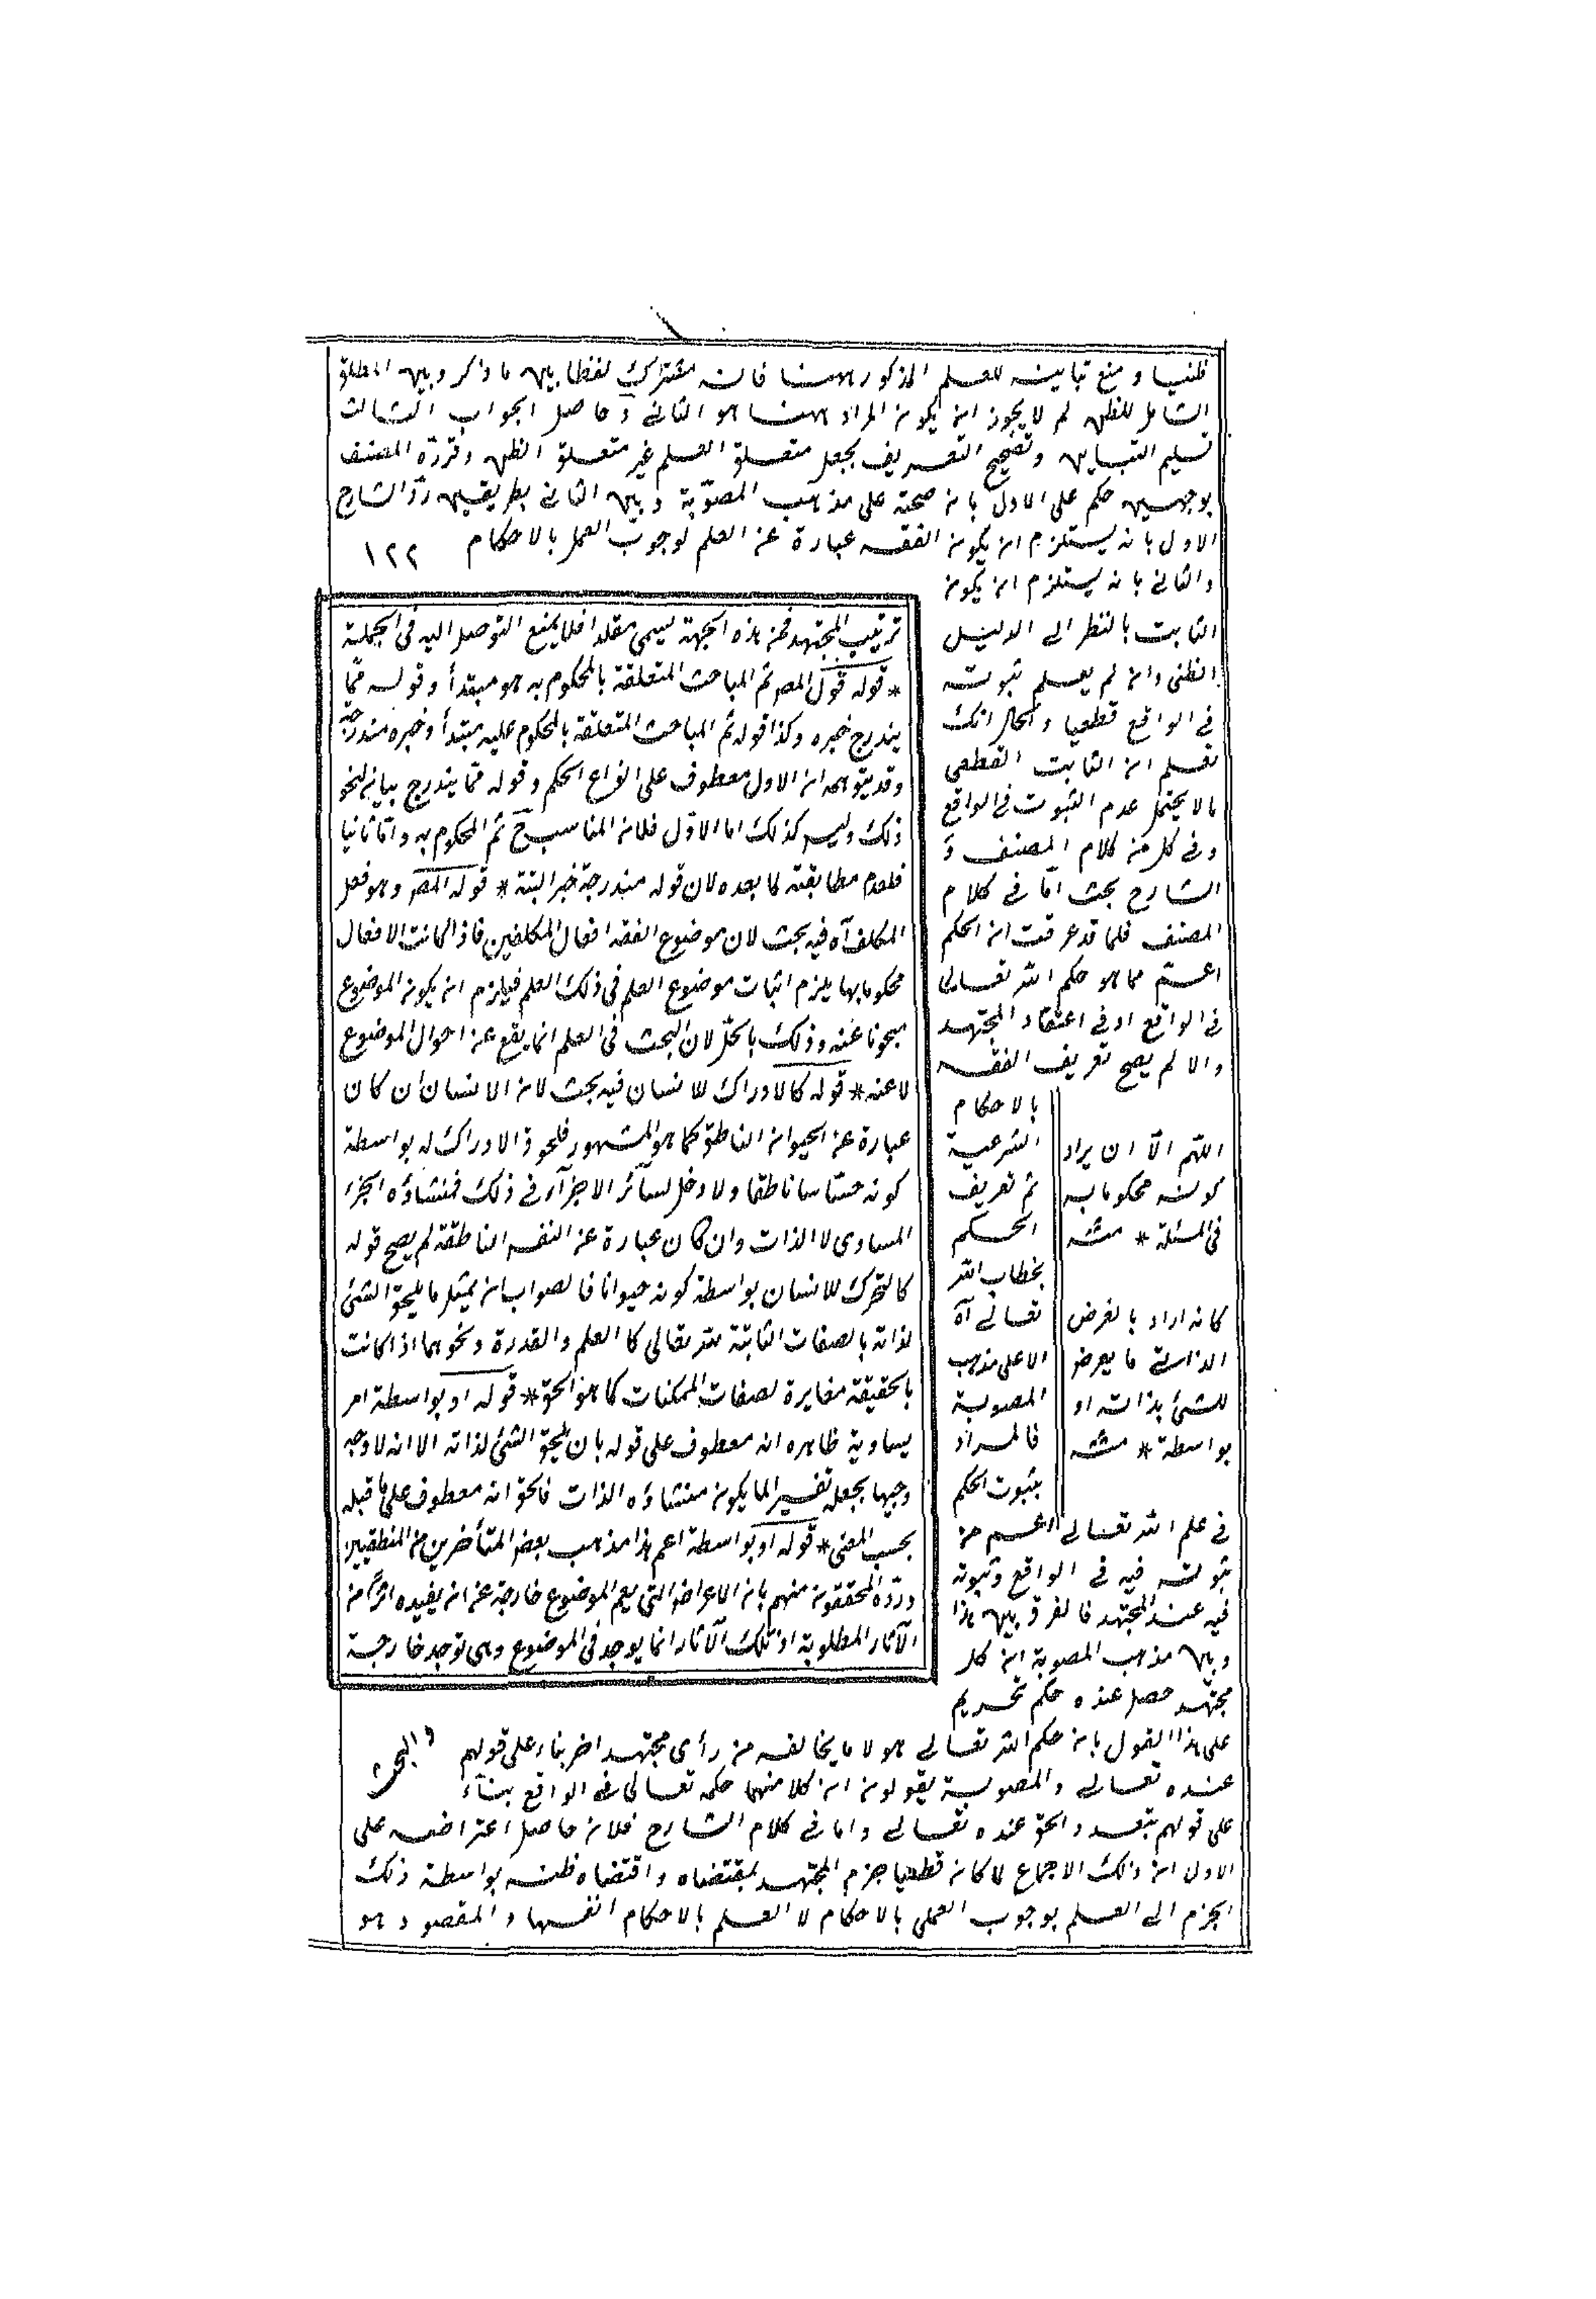 ظنيا و منع تباينه للعلم المذكور ههنا فانه مشترك لفظا بين ما ذكر و بين المطلق
الشامل للظن لم لا يجوز ان يكون المراد ههنا هو الثانى و حاصل الجواب الثالث
تسليم التباين و تصحيح التعريف بجعل متعلق العلم غير متعلق الظن و قرره المصنف
بوجهين حكم على الاول بان صحته على مذهب المصوّبة و بين الثانى بطريقين ردّ الشارح
الاول بانه يستلزم ان يكون الفقه عبارة عن العلم لوجوب العمل بالاحكام
١٢٢
والثانى بانه يستلزم ان يكون
الثابت بالنظر الى الدليل
الظنى وان لم يعلم ثبوته
فى الواقع قطعيا والحال انك
تعلم ان الثابت القطعى
ما لا يحتمل عدم الثبوت فى الواقع
و فى كل من كلام المصنف و
الشارح بحث امّا فى كلام
المصنف فلما قد عرفت ان الحكم
اعمّ مما هو حكم الله تعالى
فى الواقع او فى اعتقاد المجتهد
والا لم يصح تعريف الفقه
بالاحكام
الشرعية
ثم تعريف
الحكم
بخطاب الله
تعالى آه
الا على مذهب
المصوبة
فالمراد
بثبوت الحكم
فى علم الله تعالى اعم من
ثبوته فيه فى الواقع و ثبوته
فيه عند المجتهد فالفرق بين هذا
و بين مذهب المصوبة ان كل
مجتهد حصل عنده حكم تحريم
على هذا القول بان حكم الله تعالى هو لا ما يخالفه من رأى مجتهد اخر بناء على قولهم
عنده تعالى والمصوبة يقولون ان كلا منهما حكمه تعالى فى الواقع بناء
على قولهم بتعدد الحق عنده تعالى واما فى كلام الشارح فلان حاصل اعتراضه على
الاول ان ذلك الاجماع لما كان قطعيا جزم المجتهد بمقتضاه واقتضاه ظنه بواسطة ذلك
الجزم الى العلم بوجوب العملى بالاحكام لا العلم بالاحكام انفسها والمقصود هو
اللهم الّا ان يراد
كونه محكوما به
فى المسئلة * منه
كانه اراد بالعرض
الذاتى ما يعرض
للشئ بذاته او
بواسطة * منه
ترتيب المجتهد فمن هذه الجهة يسمى مقلدا فلا يمنع التوصل اليه فى الجملة
* قوله قول المص ثم المباحث المتعلقة بالمحكوم به هو مبتدأ و قوله ممّا
يندرج خبره و كذا قوله ثم المباحث المتعلقة بالمحكوم عليه مبتدأ و خبره مندرجة
و قد يتوهم ان الاول معطوف على انواع الحكم و قوله ممّا يندرج بيان لنحو
ذلك و ليس كذلك اما الاوّل فلان المناسب ح ثم المحكوم به و امّا ثانيا
فلعدم مطابقته لما بعده لان قوله مندرجة خبر البتة * قوله المص و هو فعل
المكلف آه فيه بحث لان موضوع الفقه افعال المكلفين فاذا كانت الافعال
محكوما بها يلزم اثبات موضوع العلم فى ذلك العلم فيلزم ان يكون الموضوع
مبحوثا عنه و ذلك باطل لان البحث فى العلم انما يقع عن احوال الموضوع
لا عنه * قوله كالادراك للانسان فيه بحث لان الانسان ان كان
عبارة عن الحيوان الناطق كما هو المشهور فلحوق الادراك له بواسطة
كونه حسّاسا ناطقا و لا دخل لسائر الاجزآء فى ذلك فمنشاؤه الجزء
المساوى لا الذات وان كان عبارة عن النفس الناطقة لم يصح قوله
كالتحرك للانسان بواسطة كونه حيوانا فالصواب ان يمثل ما يلحق الشئ
لذاته بالصفات الثابتة لله تعالى كالعلم والقدرة و نحوهما اذا كانت
بالحقيقة مغايرة لصفات الممكنات كما هو الحق * قوله او بواسطة امر
يساويه ظاهره انه معطوف على قوله بان يلحق الشئ لذاته الا انه لا وجه
وجيها بجعله تفسيرا لما يكون منشاؤه الذات فالحق انه معطوف على ما قبله
بحسب المعنى * قوله او بواسطة اعم هذا مذهب بعض المتأخرين من المنطقيين
و ردّه المحققون منهم بان الاعراض التى يعم الموضوع خارجة عن ان يفيده اثرا من
الآثار المطلوبة اذ تلك الآثار انما يوجد فى الموضوع و هى توجد خارجة
والبحث